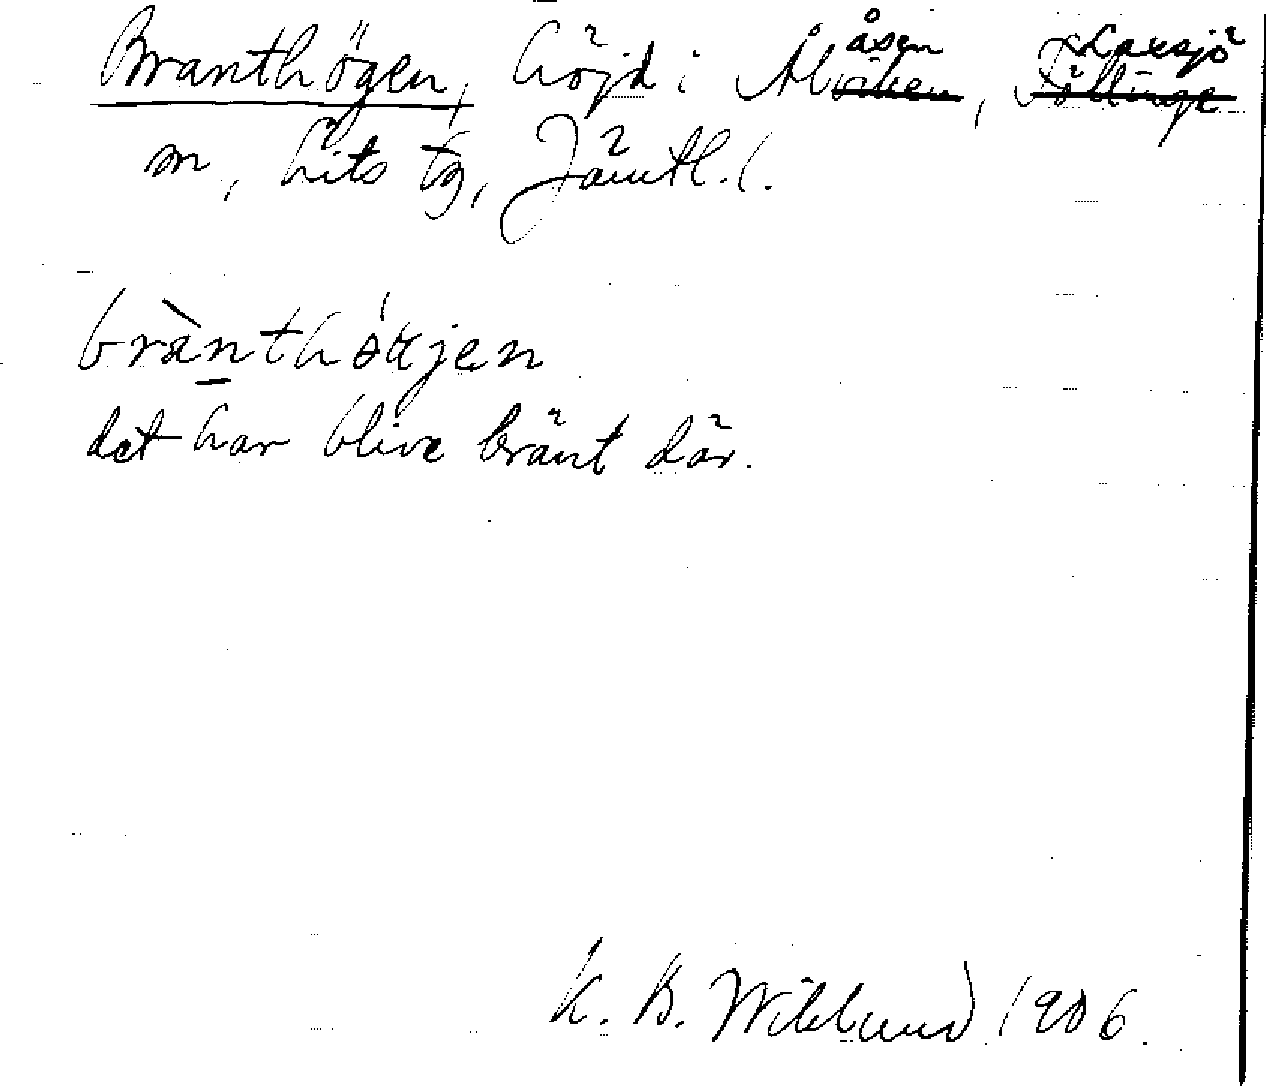 Branthögen, höjd i Ålåsen, Laxsjö
m, Lits tg, Jämtl. l.
brànthö́kjen
det har blive bränt där.
K. B. Wiklund 1906.